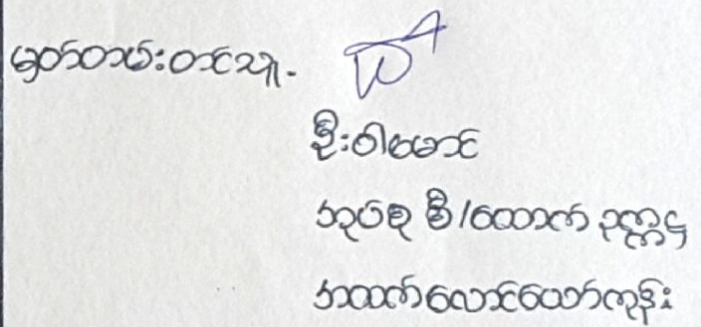 မှတ်တမ်းတင်သူ-
ဦးဝါမောင်
အုပ်စု စီ/ထောက် ဥက္ကဋ္ဌ
အထက်လောင်ယော်ကုန်း